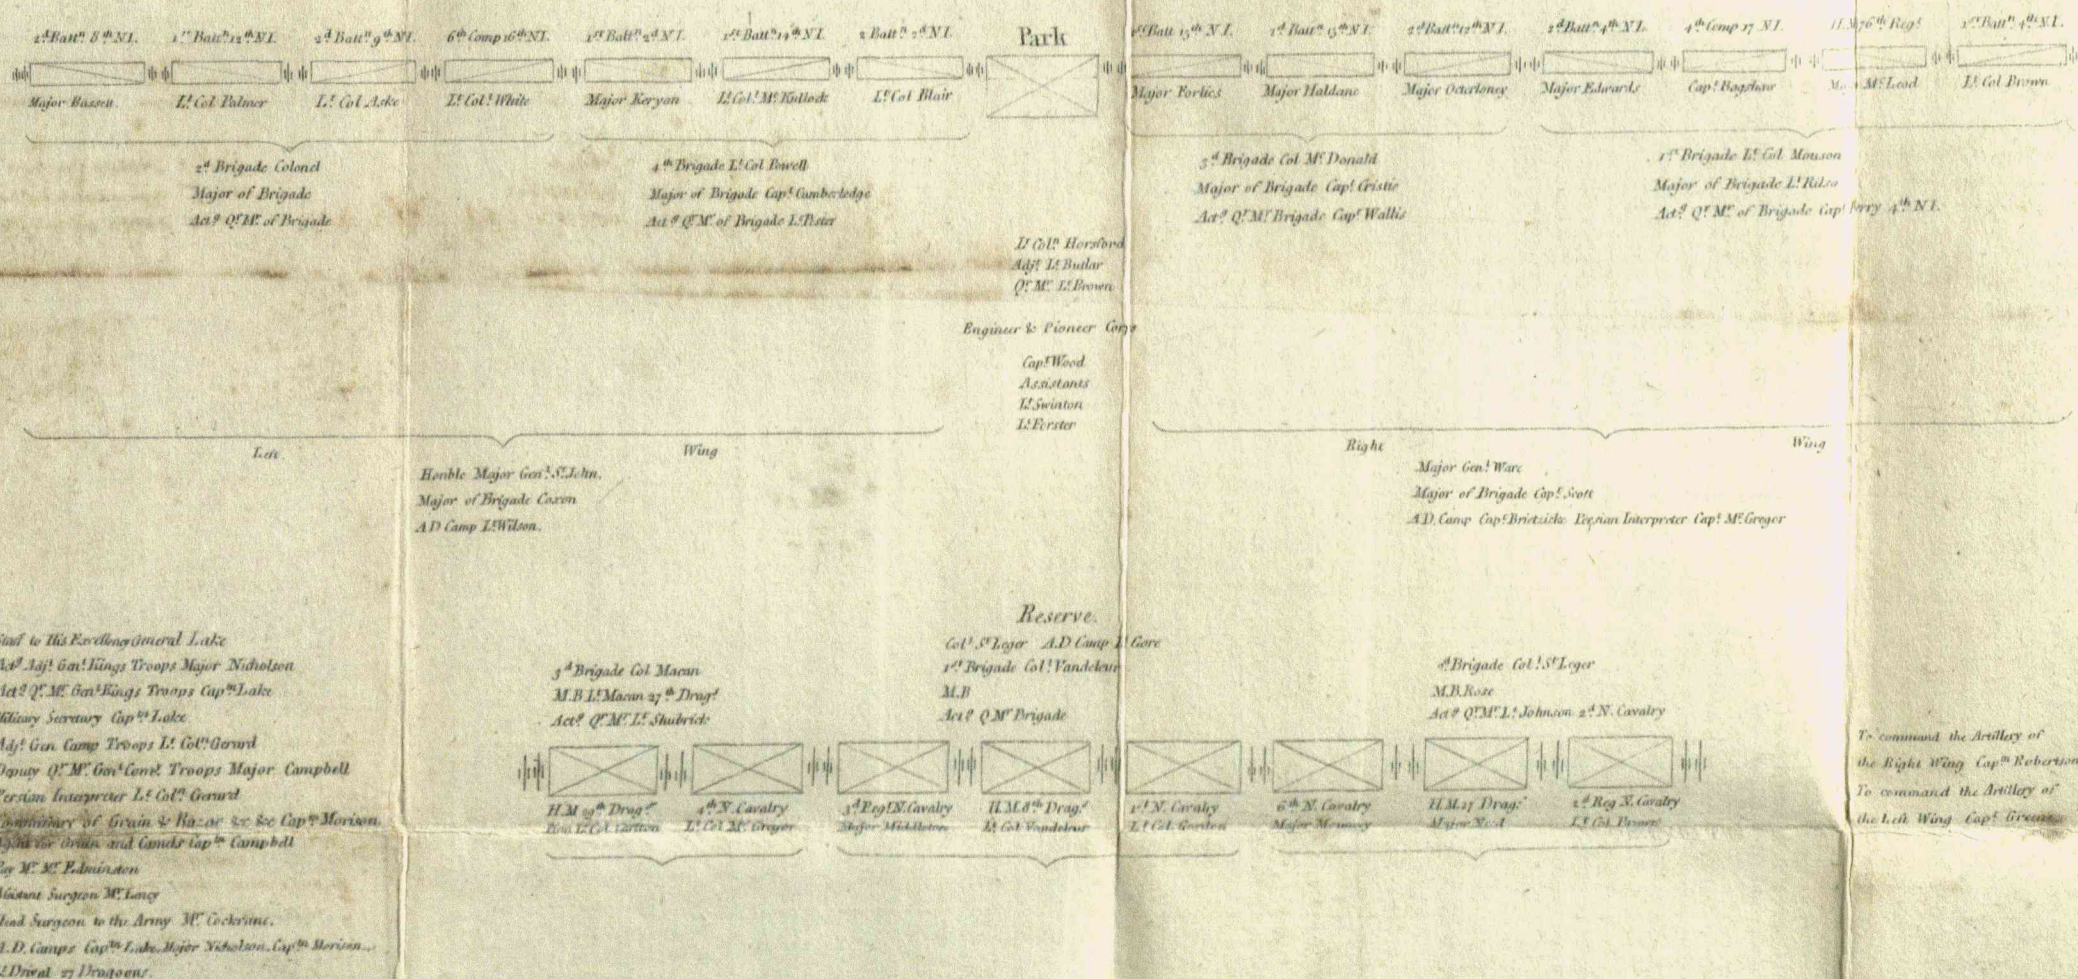 2d Battn 8th N.I. 1st Battn 12th N.I. 2d Battn 9th N.I. 6th Comp 16th N.I. 1st Battn 2d N.I. 1st Battn 14th N.I. 2 Battn 2d N.I. Park 1st Batt 15th N.I. 2d Battn 15th N.I. 2d Battn 12th N.I. 2d Battn 4th N.I. 4th Comp 17 N.I. H.M 76th Regt 1st Battn 4th N.I.
Major Bassett Lt Col Palmer Lt Col Aske Lt Coll White Major Keryan Lt Coll Mc Kullock Lt Col Blair Major Forties Major Haldane Major Octerloney Major Edwards Capt Bagshaw Mc Lead Lt Col Brown
2d Brigade Colonel
Major of Brigade
Actg Qr Mr of Brigade
4th Brigade Lt Col Powell
Major of Brigade Capt Camberledge
Actg Qr Mr of Brigade Lt Pester
3d Brigade Col Mc Donald
Major of Brigade Capt Cristie
Actg Qr Mr Brigade Capt Wallis
1st Brigade Lt Col Monson
Major of Brigade Lt
Actg Qr Mr of Brigade Capt 4th N.I.
Lt Coln Horsford
Adjt Lt Butlar
Qr Mr Lt Brown
Engineer & Pioneer Corps
Capt Wood
Assistants
Lt Swinton
Lt Forster
Left Wing
Honble Major Genl St John.
Major of Brigade Coxon
A D Camp Lt Wilson.
Right Wing
Major Genl Ware
Major of Brigade Capt Scott
A.D. Camp Capt Brietzicke Persian Interpreter Capt Mc Gregor
Reserve.
Coll St Leger A.D Camp Lt Gore
3d Brigade Col Macan
M.B Lt Macan 27th Dragt
Actg Qr Mr Lt Shubrick
1st Brigade Coll Vandeleur
M.B
Actg Q Mr Brigade
2d Brigade Coll St Leger
M.B. Rose
Actg Qr Mr Lt Johnson 2d N. Cavalry
H.M 29th Dragt 4th N. Cavalry 3d Regt N. Cavalry H.M. 8th Dragt 1st N. Cavalry 6th N. Cavalry H.M. 27 Dragt 2d Reg N. Cavalry
Lt Col Lt Col Mc Gregor Major Middleton Lt Col Vandeleur Lt Col Gordon Major Major Lt Col
Staff to His Excellency General Lake
Actg Adjt Genl Kings Troops Major Nicholson
Actg Qr Mr Genl Kings Troops Captn Lake
Military Secretary Captn Lake
Adjt Gen Comp Troops Lt Coln Gerard
Deputy Qr Mr Genl Troops Major Campbell
Persian Interpreter Lt Coln Gerard
of Grain & Bazar &c &c Captn Morison
Agent for Grain and Camels Captn Campbell
Pay Mr Mr Edminston
Assistant Surgeon Mr Lency
Head Surgeon to the Army Mr Cockrane.
A.D. Camps Captn Lake, Major Nicholson, Captn Morison.
27 Dragoons.
To command the Artillery of
the Right Wing Captn Robertson
To command the Artillery of
the Left Wing Capt Greene